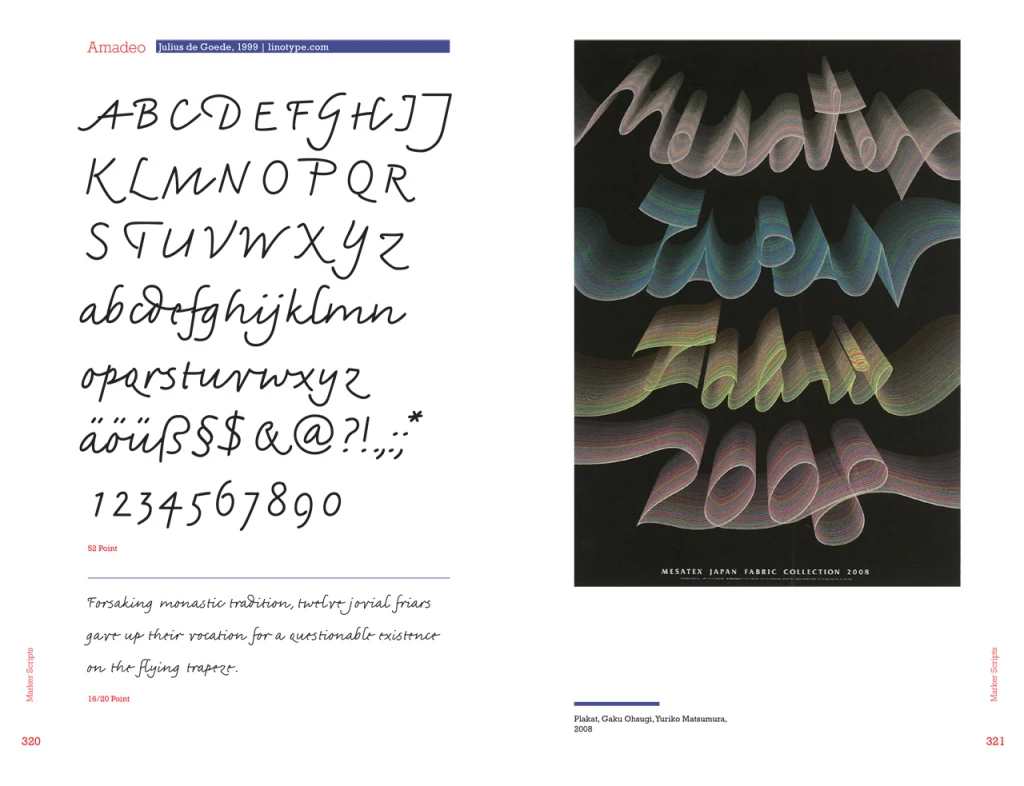 Amadeo
Julius de Goede, 1999 | linotype.com
A B C D E F G H I J
K L M N O P Q R
S T U V W X Y Z
a b c d e f g h i j k l m n
o p q r s t u v w x y z
ä ö ü ß § $ & @ ? ! . , : ; *
1 2 3 4 5 6 7 8 9 0
52 Point
Forsaking monastic tradition, twelve jovial friars
gave up their vocation for a questionable existence
on the flying trapeze.
16/20 Point
Marker Scripts
320
Mesatex
Japan
Fabric
2008
MESATEX JAPAN FABRIC COLLECTION 2008
Plakat, Gaku Ohsugi, Yuriko Matsumura,
2008
Marker Scripts
321